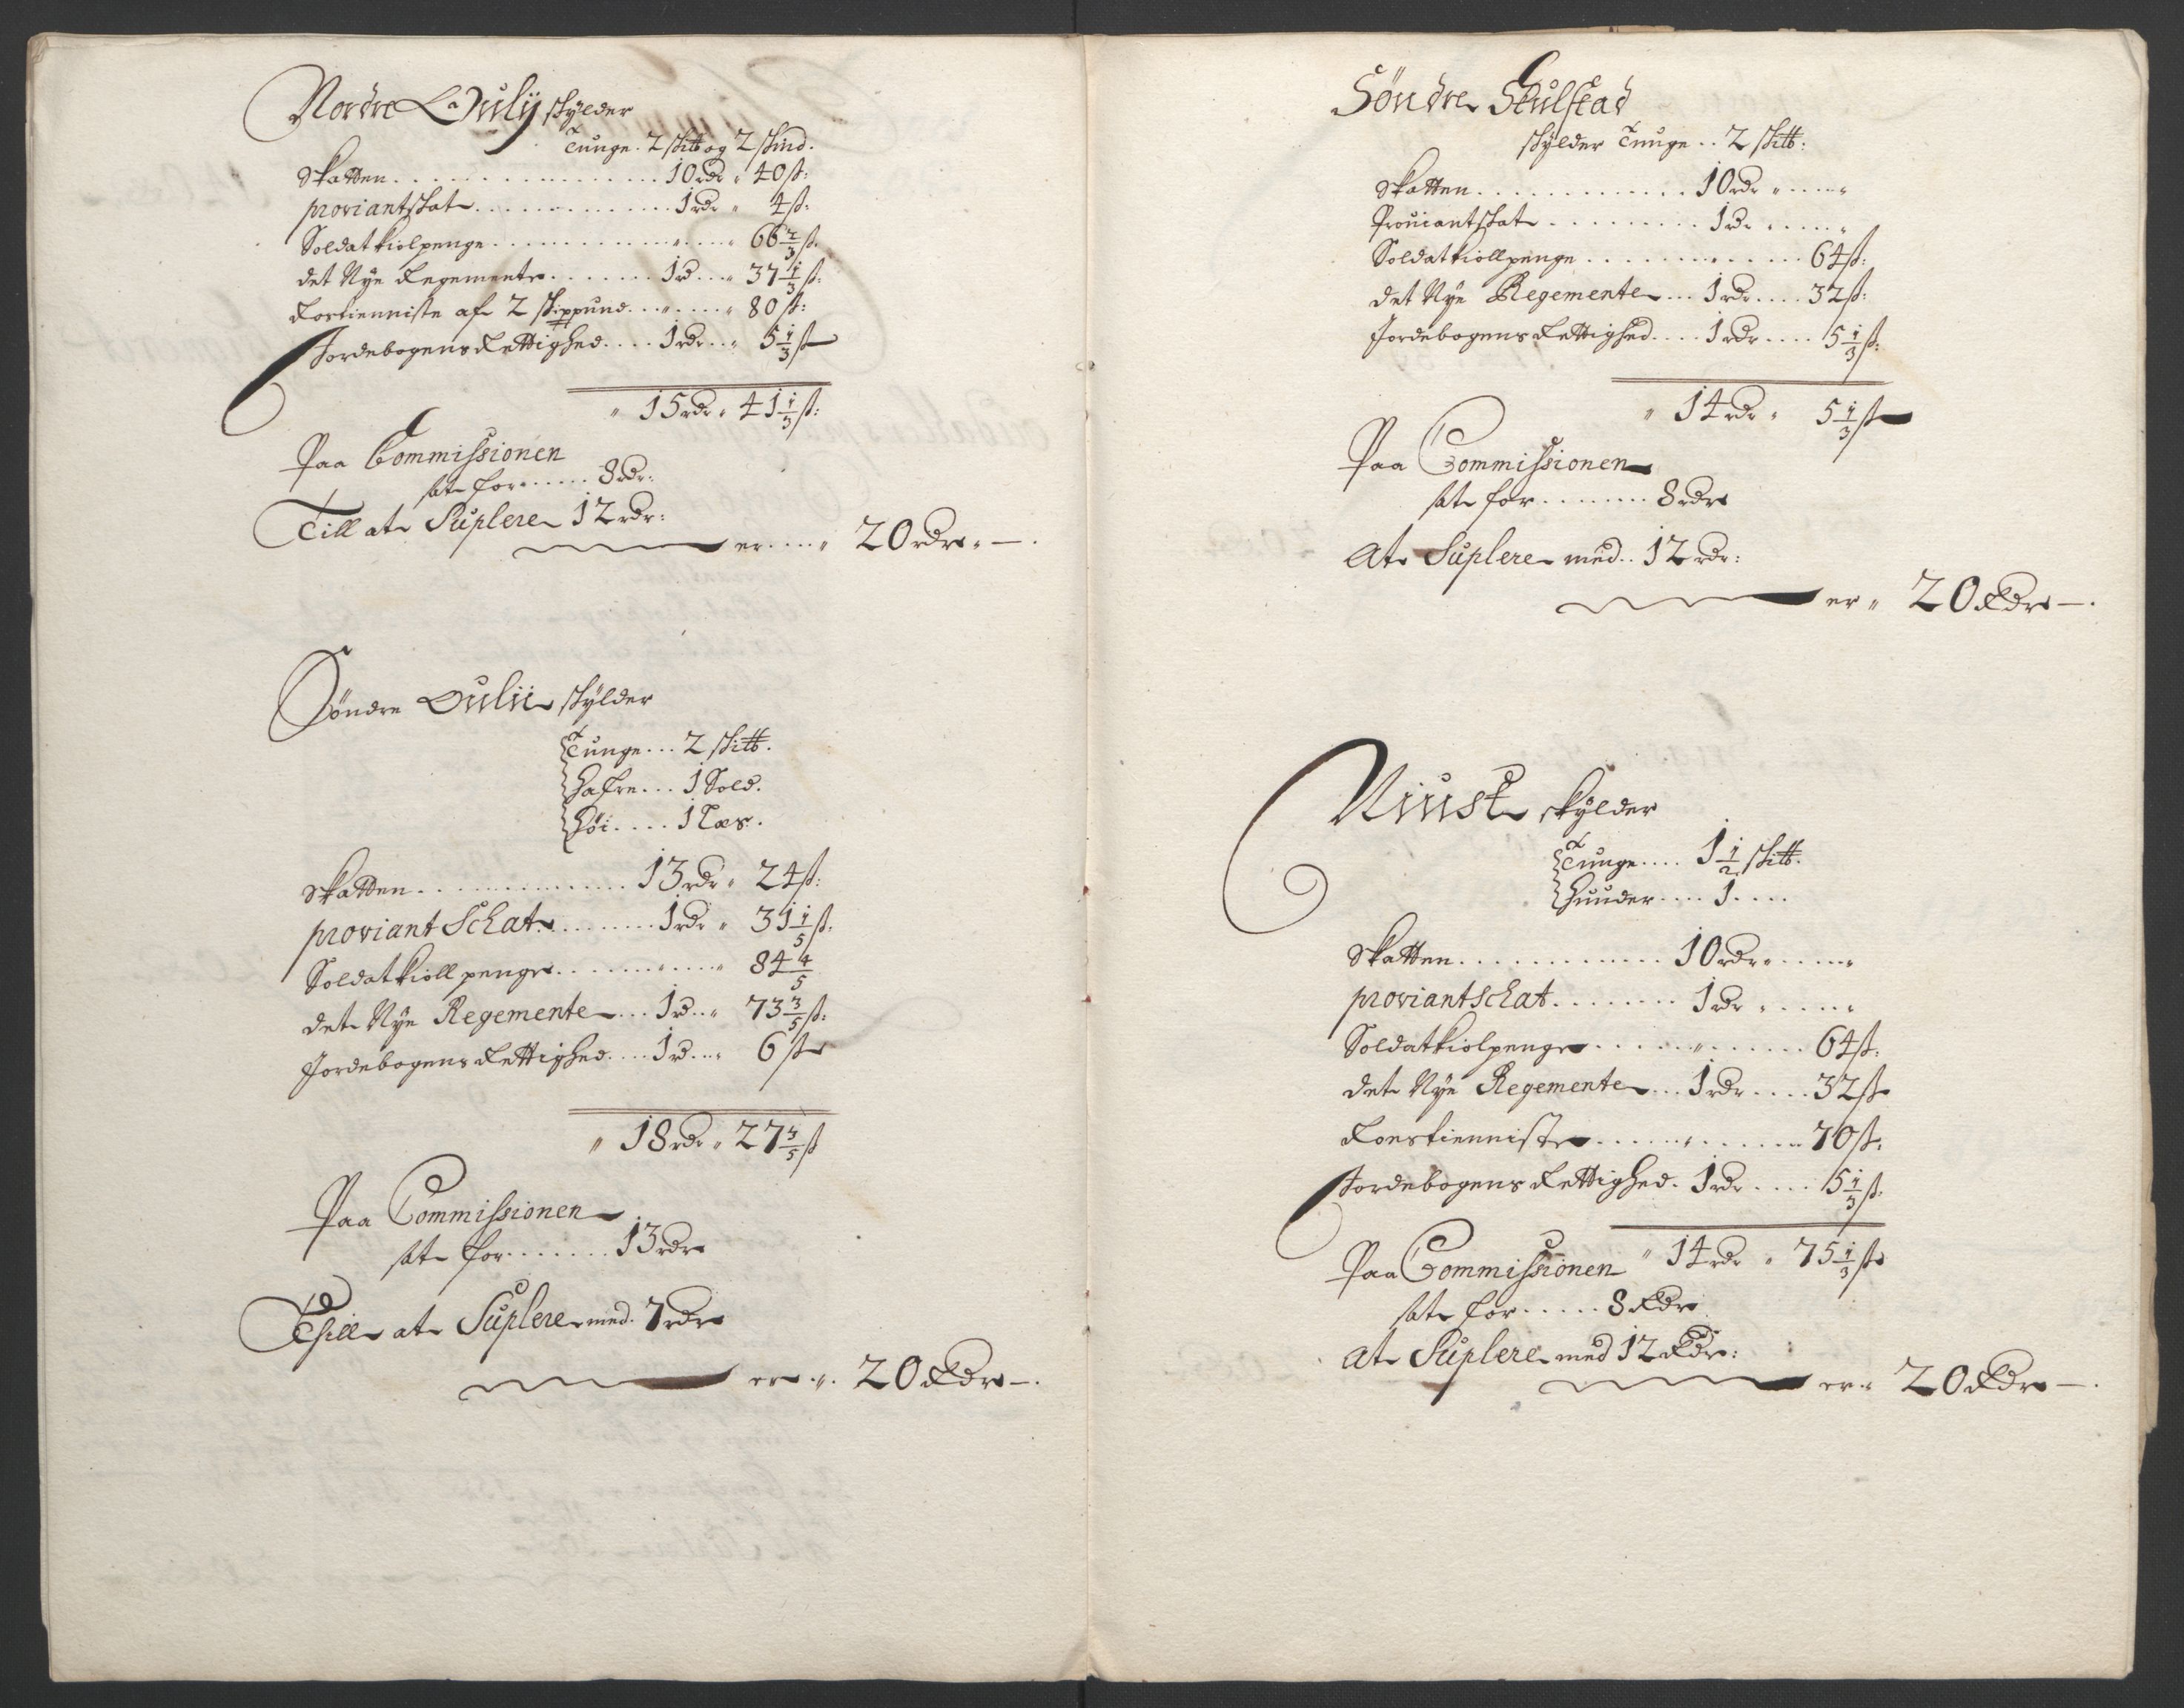 Nordre Ouly skylder
Tunge . 2 sk℔ og 2 skind .
Skatten . . . 10 rdr " 40 ß:
proviantskat . . . 1 rdr " 4 ß:
Soldatkiolpenge . . . " . . . " 66 2/3 ß.
det Nye Regemente . . . 1 rd . . " 37 1/3 ß:
Rostienniste af 2 skippund . . " . . . " 80 ß:
Jordebogens Rettighed . . . . 1 rdr . . " 5 1/3 ß
" 15 rdr " 41 1/3 ß:
Paa Commissionen
sat for . . . . . 8 rdr:
Till at Suplere 12 rdr:
er . . . . " 20 rdr " — .
Søndre Oulii skylder
Tunge . . . 2 sk℔ .
Hafre . . . 1 Sold .
Høi . . . . 1 Læs .
Skatten . . . 13 rdr " 24 ß:
proviant Schat . . . 1 rdr " 31 1/5 ß.
Soldatkioll penge . . . " . . . " 84 4/5
det Nye Regemente . . . 1 rd . . " 73 3/5 ß:
Jordebogens Rettighed . . . . 1 rd . . . " 6 ß
" 18 rdr " 27 3/5 ß
Paa Commissionen
sat for . . . . . . . 13 rdr
Till at Suplere med . 7 rdr
er . " . 20 Rdr — .
Søndre Skulstad
skylder Tunge . . 2 sk℔:
Skatten . . . 10 rdr " . . . . "
Prouiantskat . . . 1 rdr . . . . . "
Soldatkiollpenge . . . 64 ß:
det Nye Regemente . . . 1 rdr . . . . 32 ß:
Jordebogens Rettighed . . . . 1 rdr . . . . 5 1/3 ß:
" 14 rdr " 5 1/3 ß
Paa Commissionen
sat for . . . . . . . 8 rdr
At Suplere med . . 12 rdr:
er " 20 Rdr — .
Niust skylder
Tunge . . . . 1 1/2 sk℔ .
Huuder . . . . 1 . . . .
Skatten . . . 10 rdr " . . . . "
proviantschat . . . 1 rdr " . . . . "
Soldatkiolpenge . . . " . . . 64 ß:
det Nye Regemente . . . 1 rdr . . . . 32 ß
Roestienniste . . . " . . . 70 ß:
Jordebogens Rettighed . 1 rdr . . . . 5 1/3 ß:
" 14 rdr " 75 1/3 ß
Paa Commissionen
sat for . . . . . 8 Rdr
At Suplere med 12 Rdr:
er " 20 Rdr — .